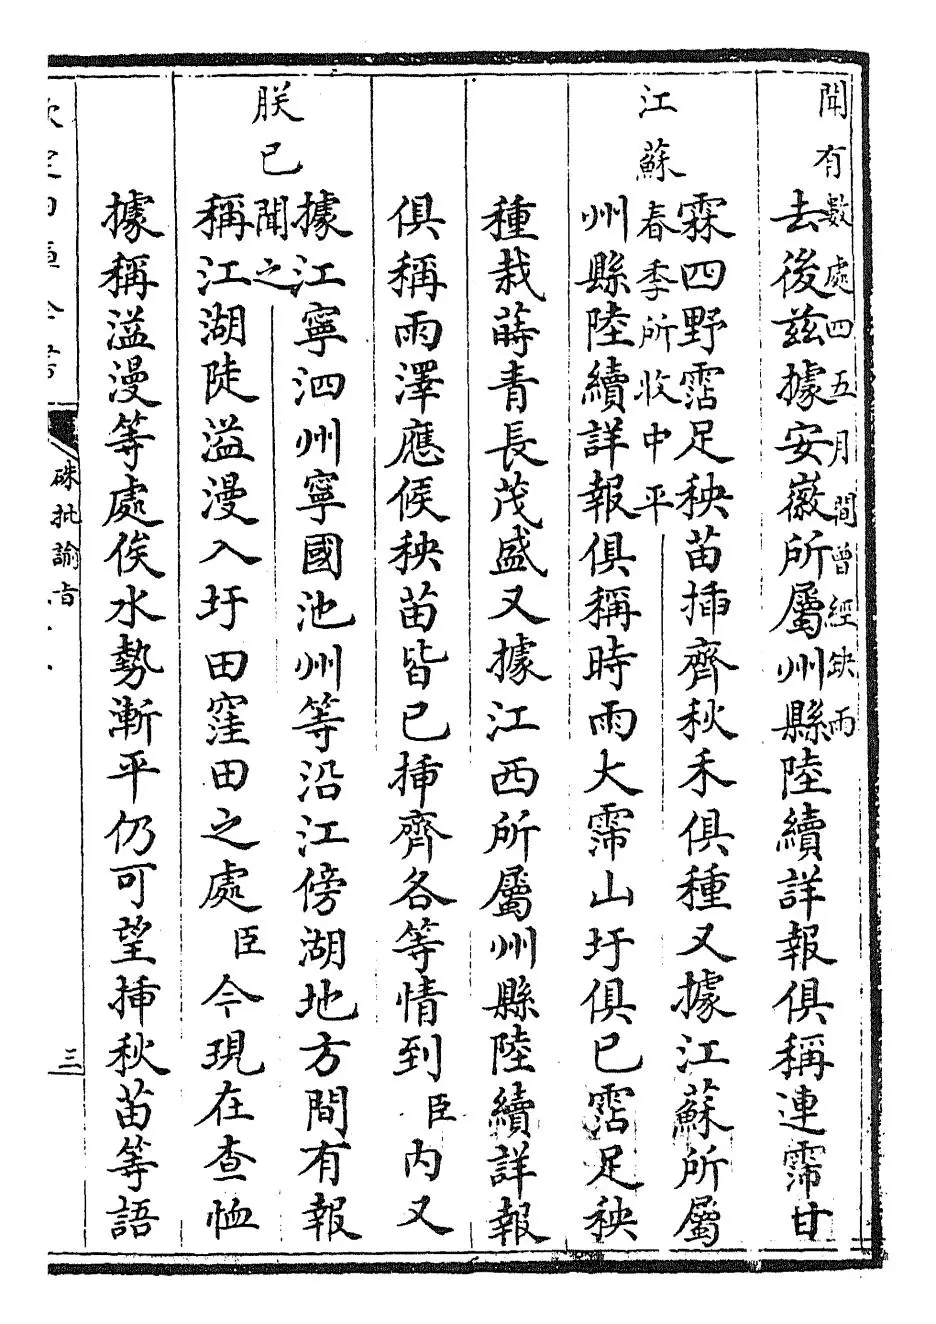 聞有數處四五月間曾經缺雨
去後茲據安徽所屬州縣陸續詳報俱稱連霈甘
霖四野霑足秧苗插齊秋禾俱種又據江蘇所屬
江蘇春季所收中平
州縣陸續詳報俱稱時雨大霈山圩俱已霑足秧
種栽蒔青長茂盛又據江西所屬州縣陸續詳報
俱稱雨澤應候秧苗皆已插齊各等情到臣內又
據江寧泗州寧國池州等沿江傍湖地方間有報
朕已聞之
稱江湖陡溢漫入圩田窪田之處臣今現在查恤
據稱溢漫等處俟水勢漸平仍可望插秋苗等語
硃批諭旨
三